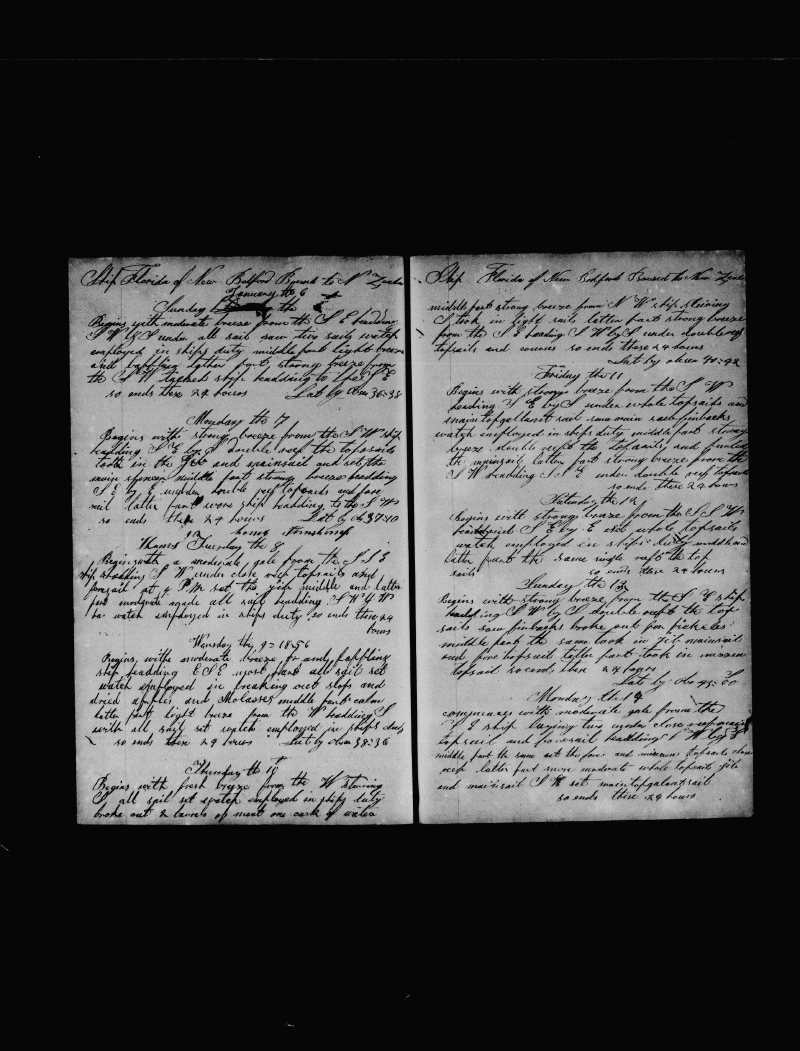 Ship Florida of New Bedford Bound to N
January the 6
Sunday the
Begins with moderate breeze from the S E heading
S W by S under all sail saw two sails watch
employed in ships duty middle part light breeze
and latter part strong breeze from
the S W tacked ship heading to the S E
so ends these 24 hours Lat by obs 36=38
Monday the 7
Begins with strong breeze from the S W ship
heading S E by S double reef the topsails
took in the jib and mainsail and set the
main spencer middle part strong breeze heading
S E by E under double reef topsails and fore
sail latter part wore ship heading to the S W
so ends these 24 hours Lat by ob 37=10
Tuesday the 8
Begins with a moderate gale from the S S E
ship heading S W under close reef topsails and
foresail at 4 P.M. set the jib middle and latter
part moderate made all sail heading S W by W
watch employed in ships duty so ends these 24
hours
Wensday the 9=1856
Begins withe moderate breeze
ship heading E S E most part all sail set
watch employed in breaking out slops and
dried apples and Molasses middle part calm
latter part light breeze from the W heading S
with all sail set watch employed in ships duty
so ends these 24 hours Lat by obser 38=36
Thursday the 10
Begins with fresh breeze from the W stearing
S all sail set watch employed in ships duty
broke out 2 barrels of meat one cask of water
Ship Florida of New Bedford Bound to New
middle part strong breeze from N W ship stearing
S took in light sails latter part strong breeze
from the S E heading S W by S under double reef
topsails and courses so ends these 24 hours
Lat by obser 40=42
Friday the 11
Begins with strong breeze from the S W
heading S E by S under whole topsails and
main topgallant sail saw finbacks
watch employed in ships duty middle part strong
breeze double reeft the topsails and furled
the mainsail latter part strong breeze from the
S W heading S S E under double reef topsails
so ends these 24 hours
Saturday the 12
Begins with strong breeze from the S S W
S E by E under whole topsails
watch employed in ships duty middle and
latter part the same single reeft the top
sails so ends these 24 hours
Sunday the 13
Begins with strong breeze from the S E ship
heading S W by S double reeft the top
sails saw finbacks broke out for pickles
middle part the same took in jib mainsail
and fore topsail latter part took in mizzen
topsail so ends these 24 hours
Lat by obs
Monday the 14
commences with moderate gale from the
S E ship laying two under close reef main
topsail and foresail heading S W by
middle part the same set the fore and mizzen topsails close
reef latter part more moderate whole topsails jib
and mainsail set main topgallantsail
so ends these 24 hours